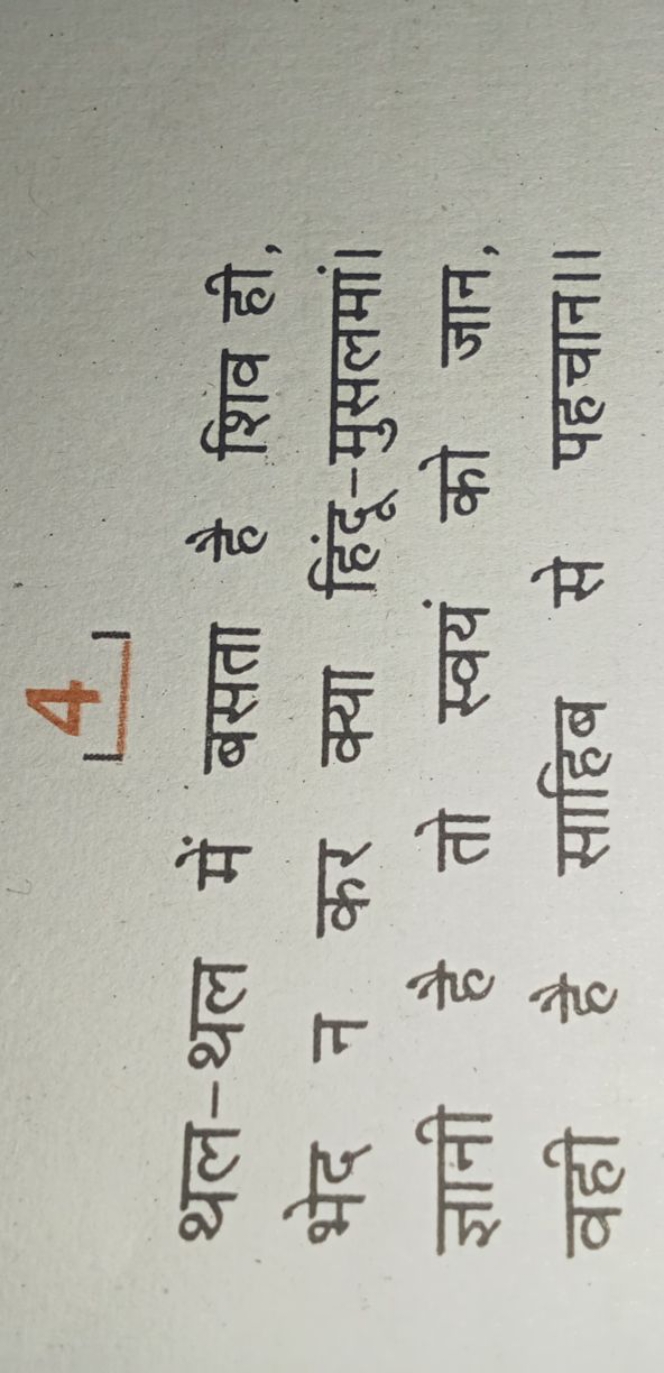 4
थल-थल में बसता है शिव ही,
भेद न कर क्या हिंदू-मुसलमां।
ज्ञानी है तो स्वयं को जान,
वही है साहिब से पहचान।।